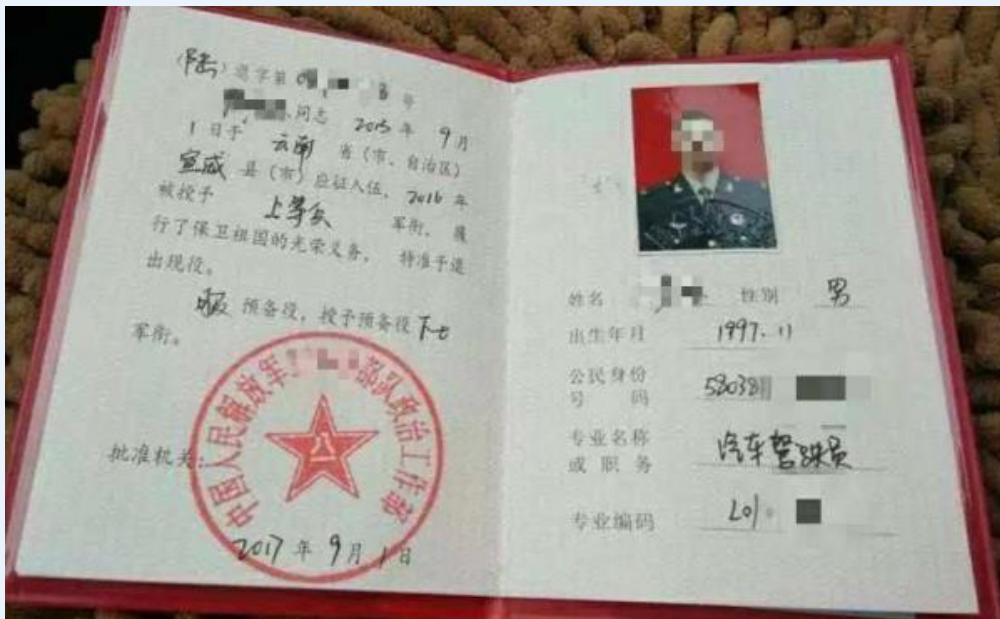 (陆)退字第0 3号
同志 2015年9月
1日于云南省(市、自治区)
宣威县(市)应征入伍，2016年
被授予 上等兵 军衔，履
行了保卫祖国的光荣义务， 特准予退
出现役。
服预备役，授予预备役下士
军衔。
中国人民解放军 部队政治工作部
批准机关:
2017年9月1日
姓名 性别 男
出生年月 1997.11
公民身份
号码 58038
专业名称
或职务 汽车驾驶员
专业编码 L01